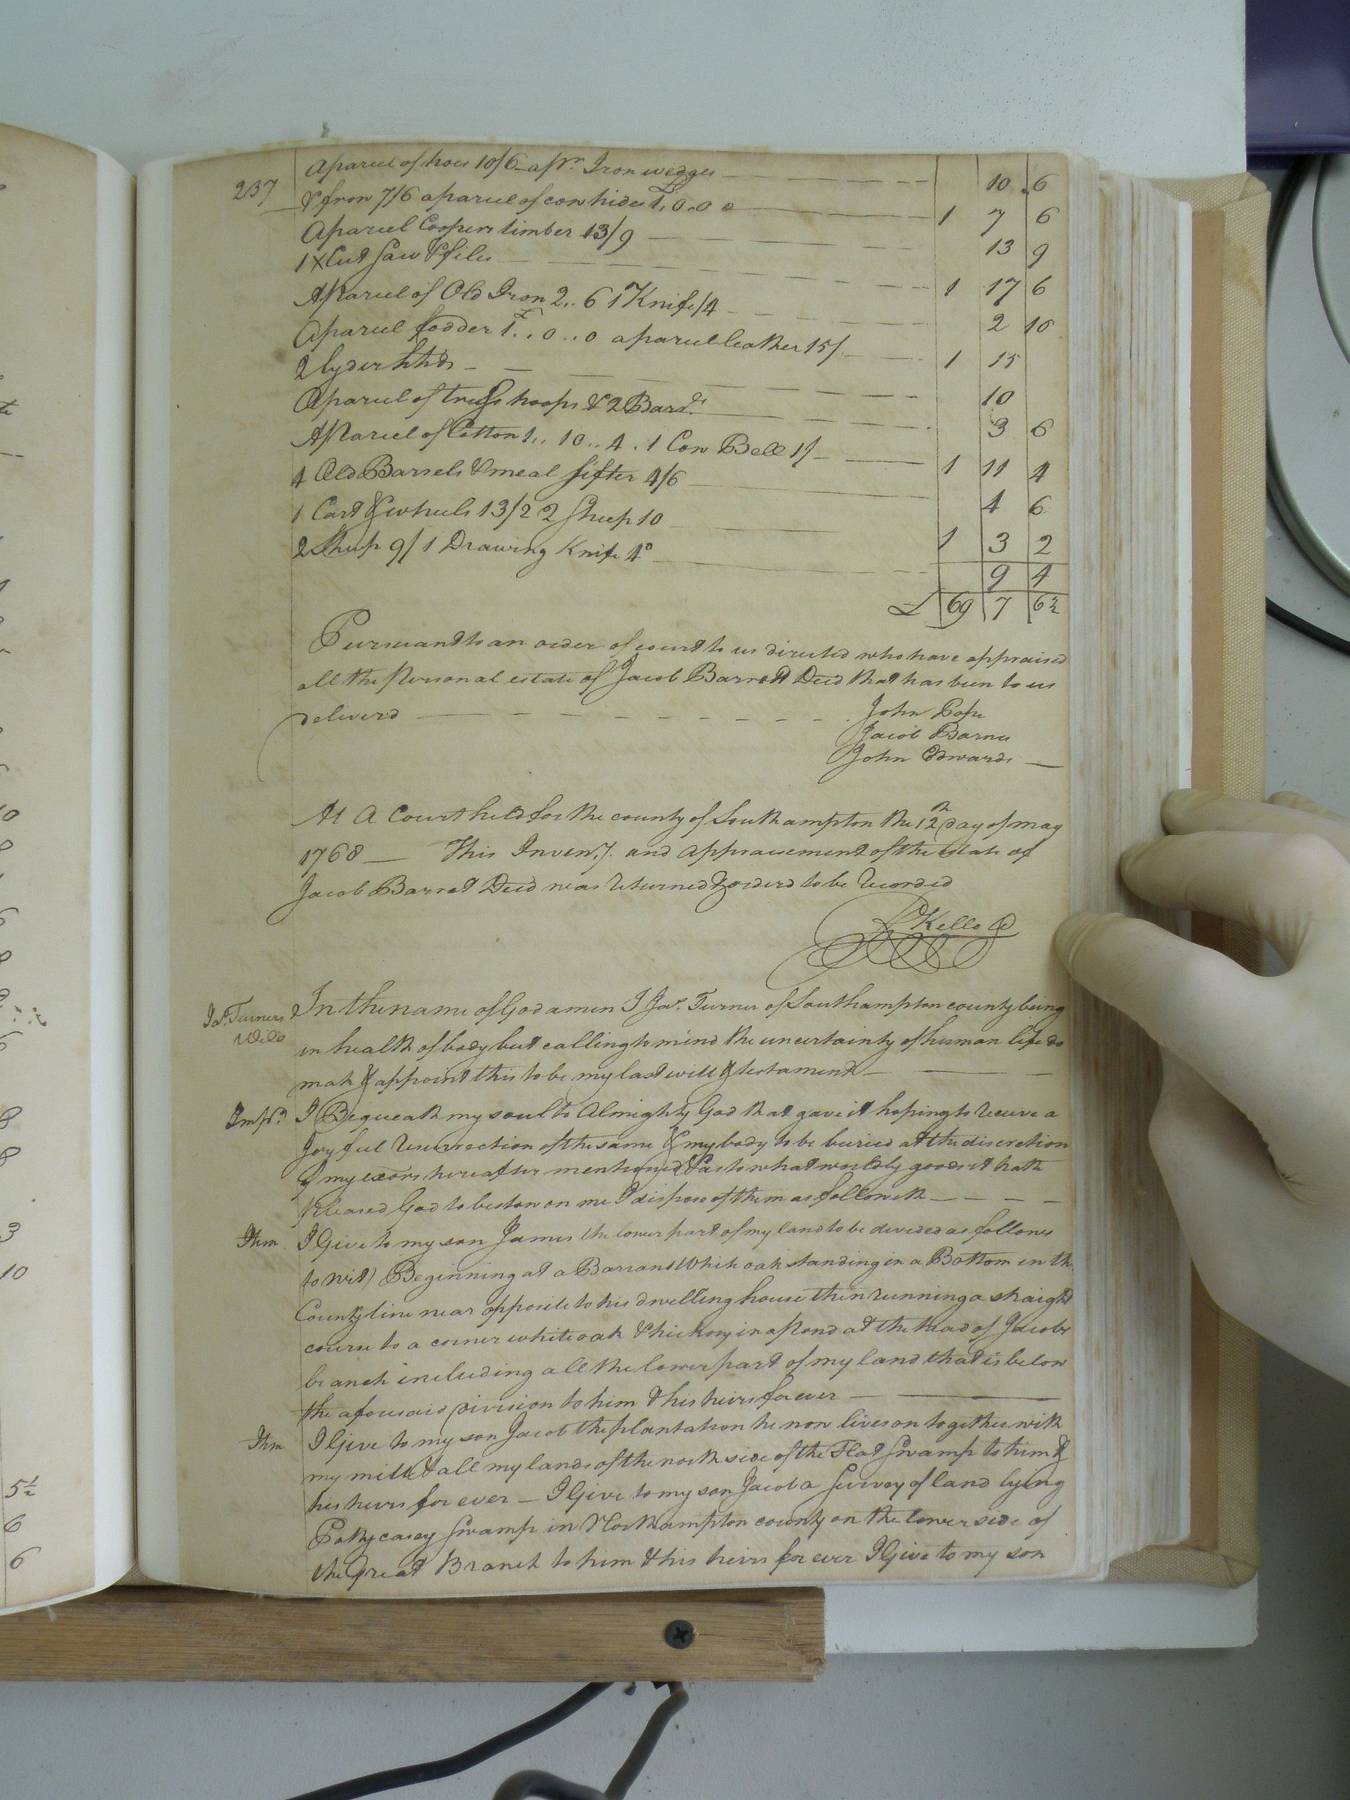 237
A parcel of hoes 10/6 a pr. Iron wedges 10 6
& fron 7/6 a parcel of cow hides £1,0,0 1 7 6
A parcel Coopers timber 13/9 13 9
1 X Cut Saw & files 1 17 6
A Parcel of Old Iron 2..6 1 Knife /4 2 10
A parcel fodder £1..0..0 a parcel leather 15/ 1 15
2 Cyder hhds 10
A parcel of truss hoops & 2 Bards. 3 6
A Parcel of Cotton 1..10..4. 1 Cow Bell 1/ 1 11 4
4 Old Barrels & meal sifter 4/6 4 6
1 Cart & wheels 13/2 2 Sheep 10 1 3 2
2 Sheep 9/ 1 Drawing Knife 4d 9 4
£ 69 7 6½
Pursuant to an order of court to us directed who have appraised
all the Personal estate of Jacob Barrett Decd that has been to us
deliverd
John Pope
Jacob Barnes
John Edwards
At A Court held for the county of Southampton the 12th day of may
1768 This Inventy. and appraisement of the estate of
Jacob Barret Decd was returned & orderd to be recorded
R Kello C
Jas. Turners
Will
In the name of God amen I Jas. Turner of Southampton county being
in health of body but calling to mind the uncertainty of human life do
mak & appoint this to be my last will & testament
Imps. I Bequeath my soul to Almighty God that gave it hoping to receive a
Joyful resurrection of the same & my body to be buried at the discretion
of my exors hereafter mentioned & as to what worldly goods it hath
Pleased God to bestow on me I dispose of them as followeth
Item I Give to my son James the lower part of my land to be devided as follows
to wit) Beginning at a Barrans White oak standing in a Bottom in the
County line near opposite to his dwelling house then running a straight
course to a corner white oak & hickory in a Pond at the head of Jacobs
branch including all the lower part of my land that is below
the aforesaid division to him & his heirs forever
Item I Give to my son Jacob the plantation he now lives on together with
my mill & all my lands of the north side of the Flat Swamp to him &
his heirs for ever I Give to my son Jacob a Survey of land lying
Pottycasey Swamp in Northampton county on the lower side of
the Great Branch to him & his heirs for ever I Give to my son